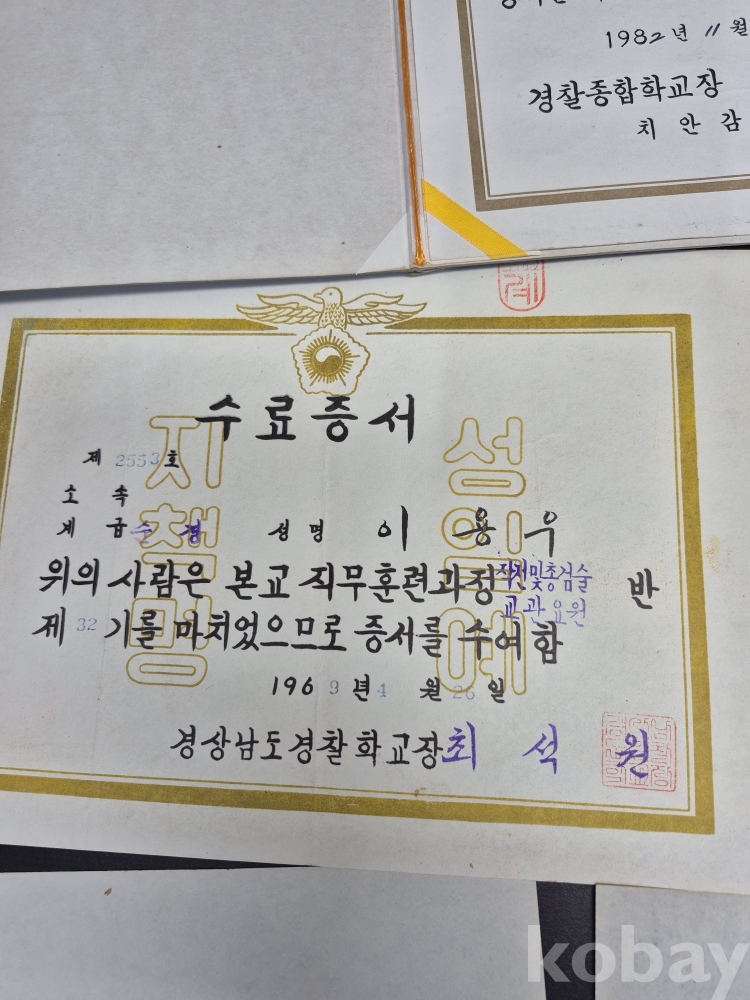 1982년 11월
경찰종합학교장
치안감
계
수료증서
제 2553호
소속
계급 순경 성명 이용우
위의 사람은 본교 직무훈련과정 작전및총검술 교관요원 반
제 32 기를 마치었으므로 증서를 수여함
1969년 4월 26일
경상남도경찰학교장 최석원
지 책 명
성 의 예
kobay